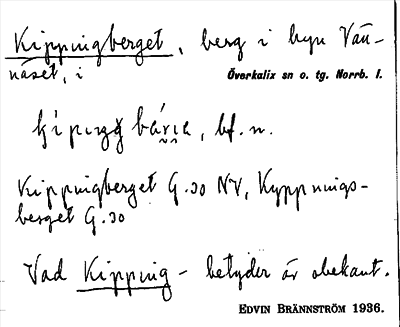 Kippingberget, berg i byn Vän-
näset, i Överkalix sn o. tg. Norrb. l.
bf. n.
Kippingberget G.30 NV, Kyppnings-
berget G.30
Vad Kipping - betyder är obekant.
EDVIN BRÄNNSTRÖM 1936.